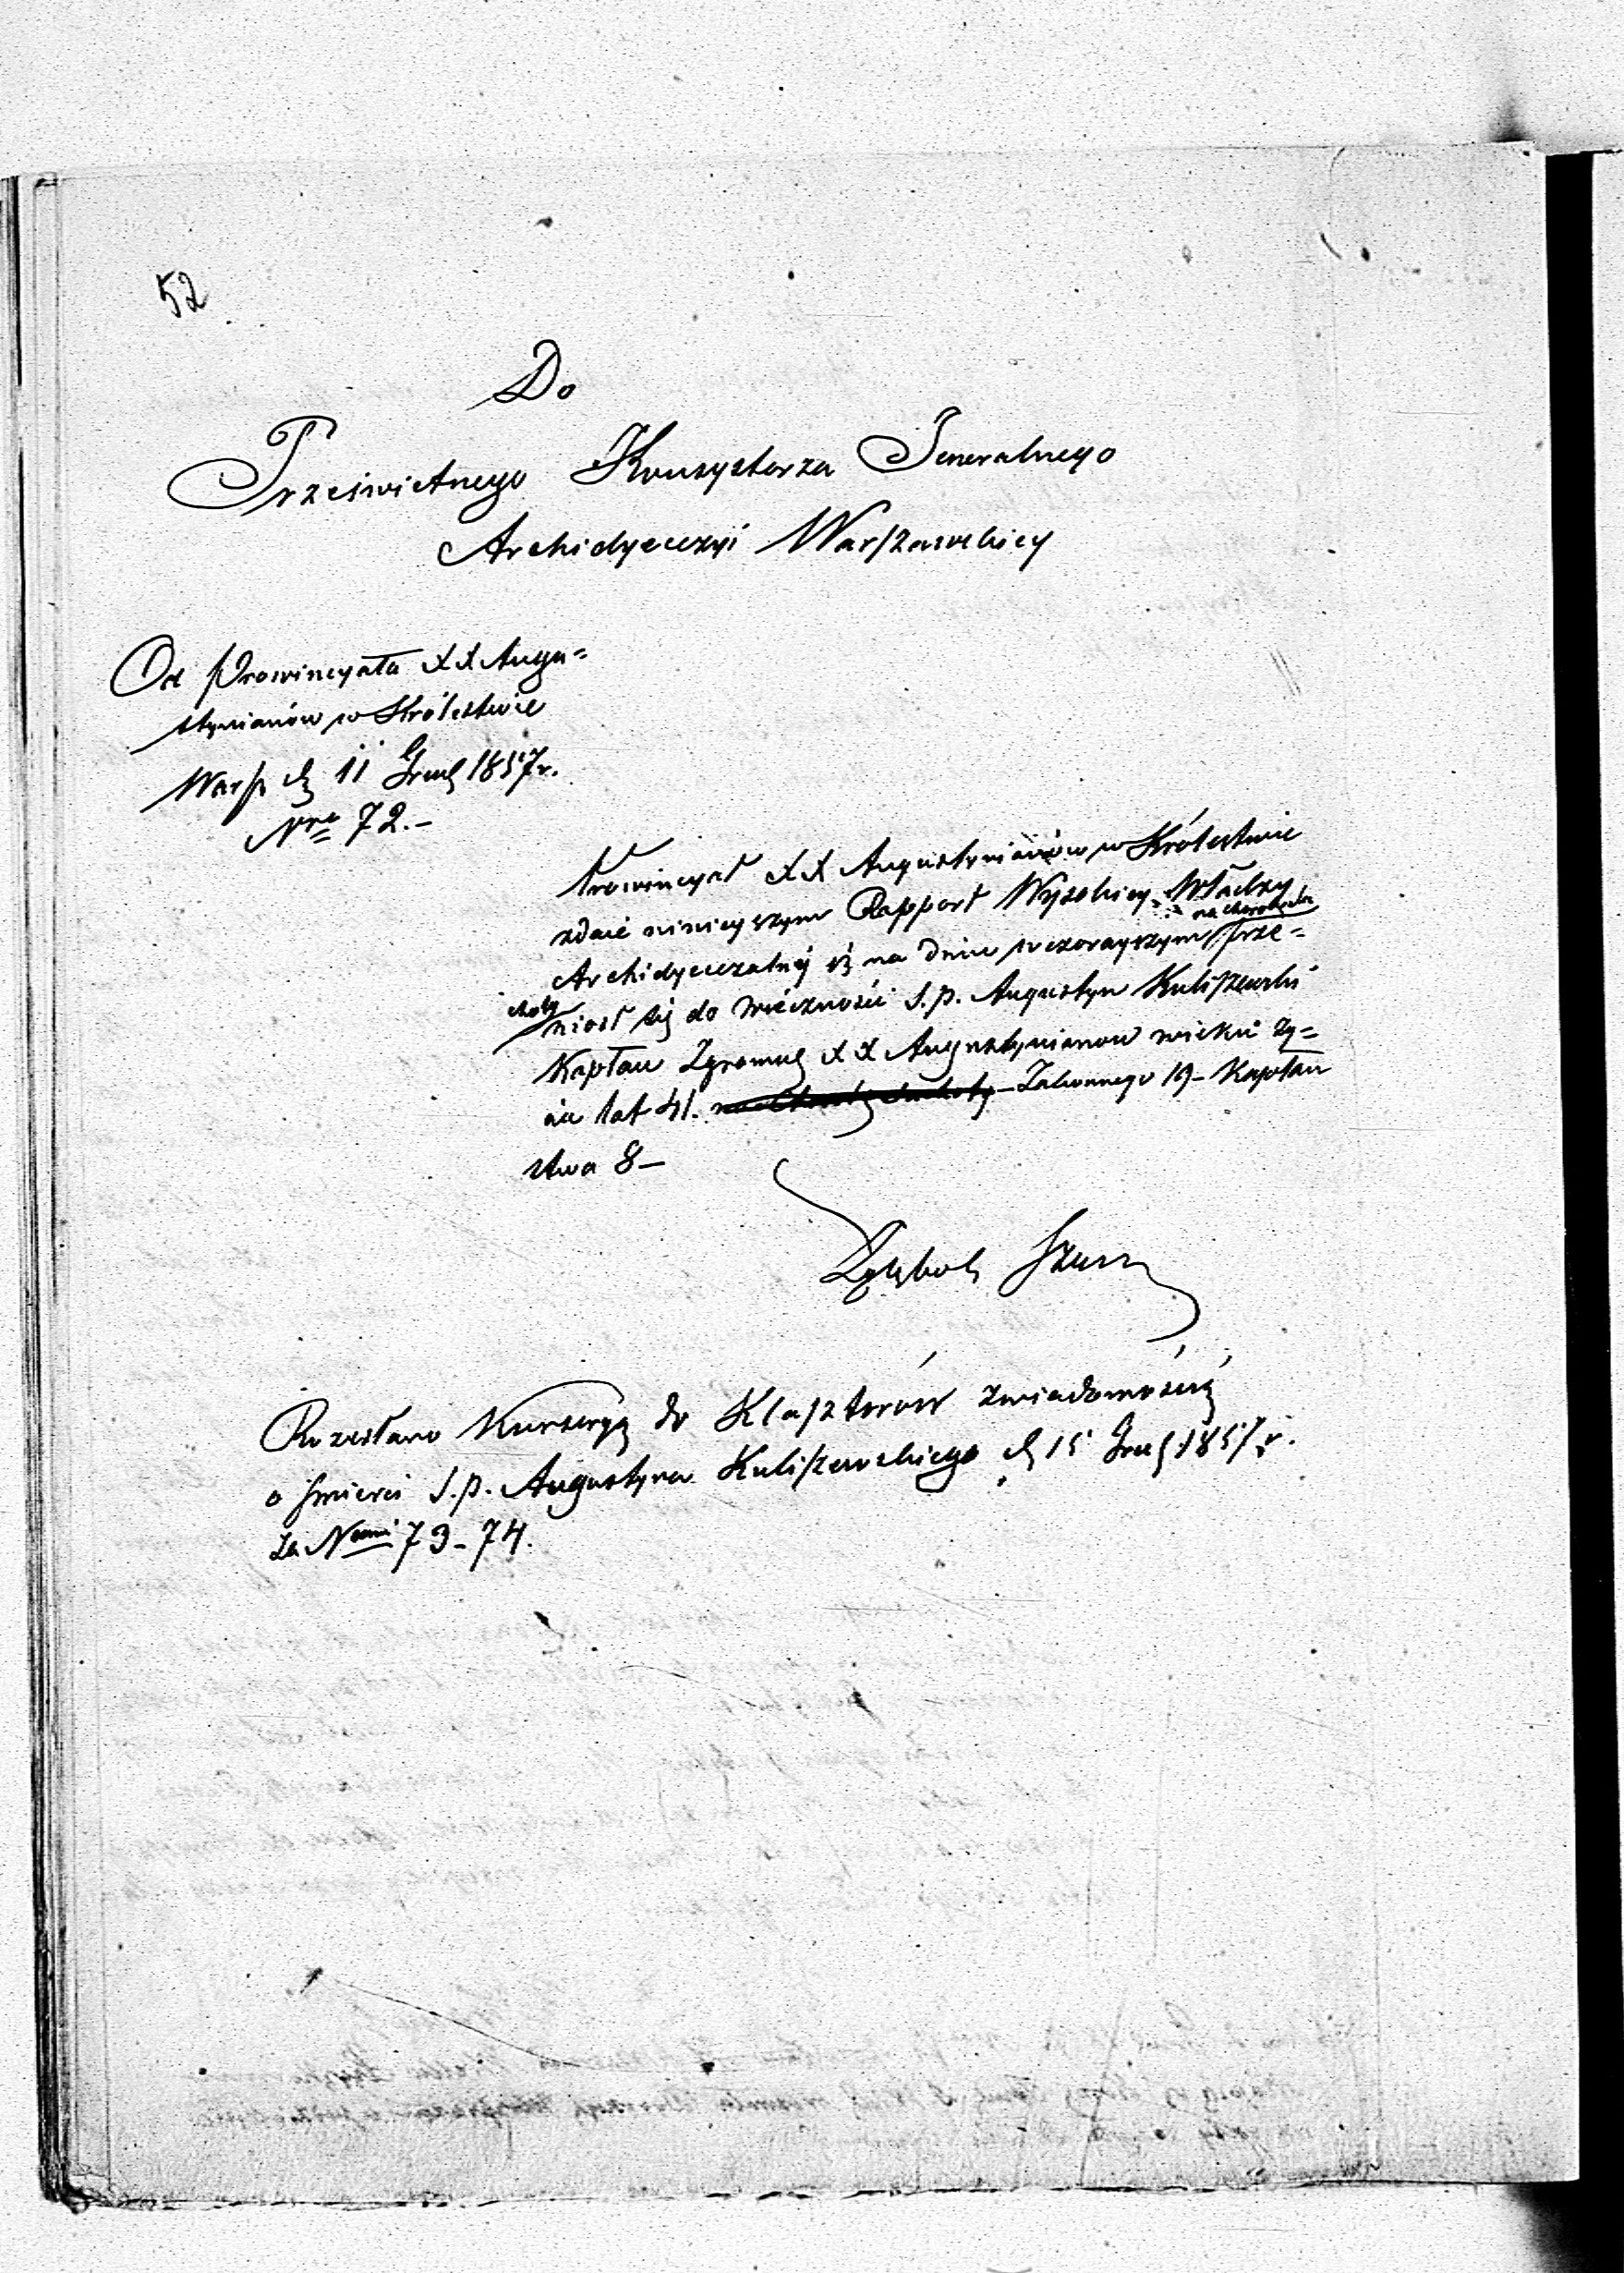 52
Do
Prześwietnego Konsystorza Generalnego
Archidyecezyi Warszawskiey
Od Prowincyała XX Augu=
stynianów w Królestwie
Warsz d. 11 Grud 1857r.
Nro 72.-
Prowincyał XX Augustynianów w Królestwie
zdaie ninieyszym Rapport Wyzskiey Władzy
na chorobę su
Archidyecezalnéy iż na dniu wczorayszym prze=
choty
niosł się do wieczności ś.p. Augustyn Kuliszewski
Kapłan Zgromad XX Augustynianow wieku ży=
cia lat 41. Zakonnego 19- Kapłań
stwa 8-
Rozesłano Kurseryą do Klasztorów zwiadomością
o śmierci ś.p. Augustyna Kuliszewskiego d 15 Grud 1857 r.
za Nami 73-74.